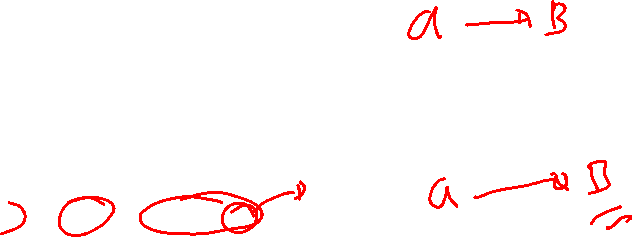 a → B
a → B